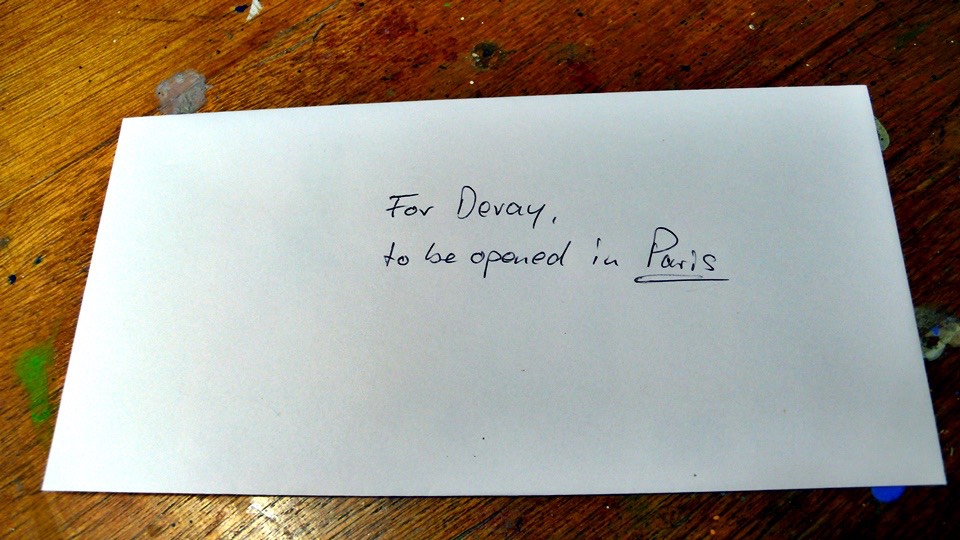 For Devay,
to be opened in Paris